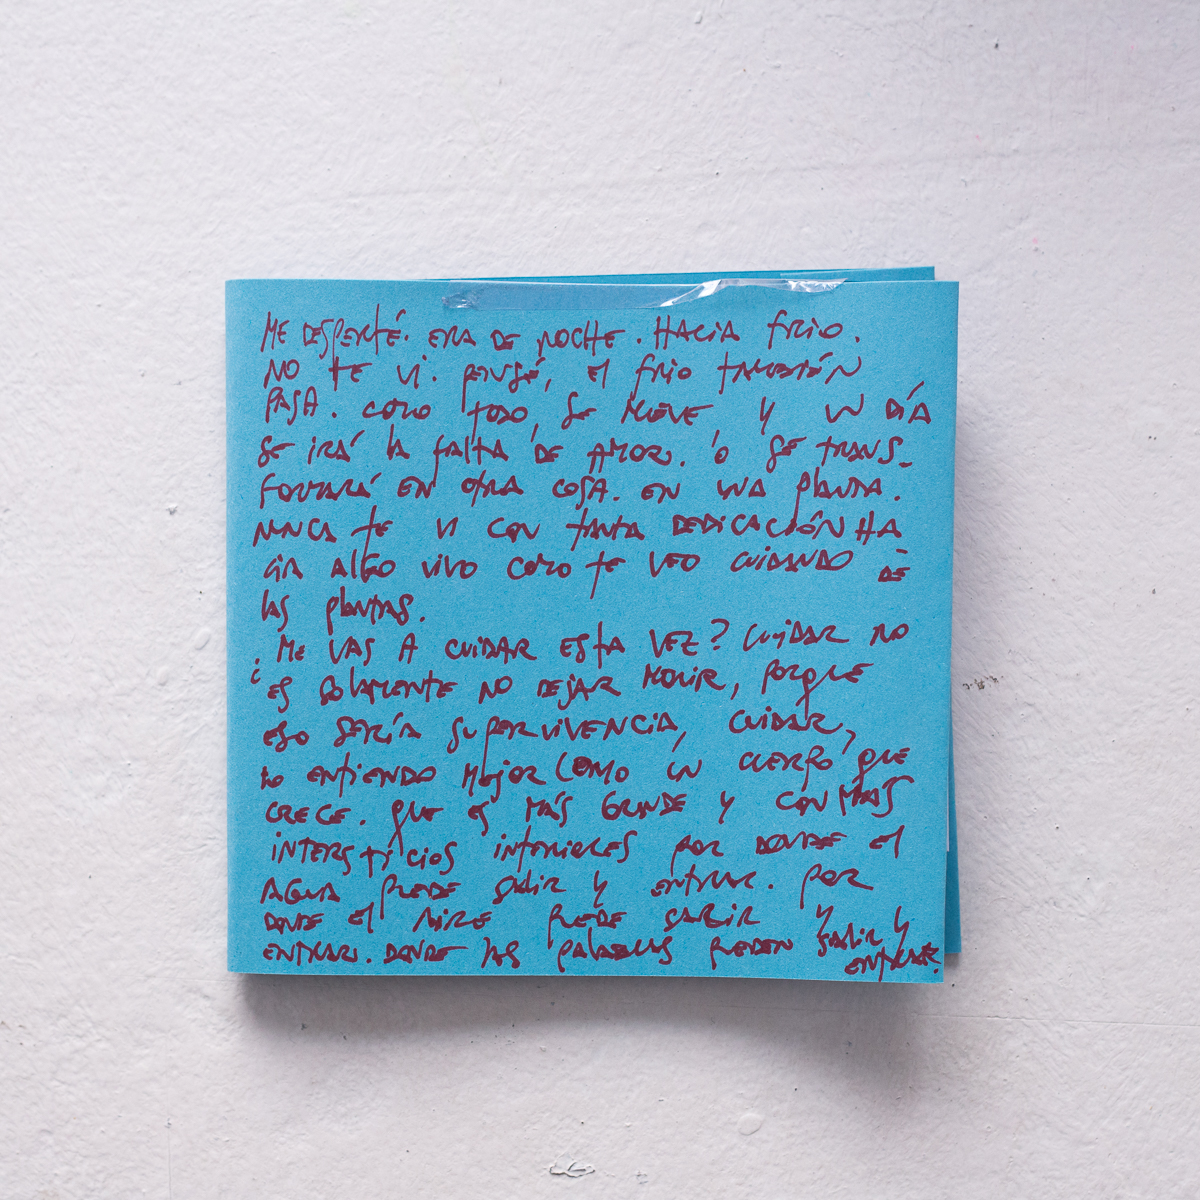 ME DESPERTÉ. ERA DE NOCHE. HACIA FRIO.
NO TE VI. PENSÉ, EL FRIO TAMBIÉN
PASA. COMO TODO, SE MUEVE, Y UN DÍA
SE IRÁ LA FALTA DE AMOR. O SE TRANS-
FORMARÁ EN OTRA COSA. EN UNA PLANTA.
NUNCA TE VI CON TANTA DEDICACIÓN HA
CIA ALGO VIVO COMO TE VEO CUIDANDO DE
LAS PLANTAS.
¿ME VAS A CUIDAR ESTA VEZ? CUIDAR NO
ES SOLAMENTE NO DEJAR MORIR, PORQUE
ESO SERÍA SUPERVIVENCIA, CUIDAR,
LO ENTIENDO MEJOR COMO UN CUERPO QUE
CRECE. QUE ES MÁS GRANDE Y CON MÁS
INTERSTICIOS INTERIORES POR DONDE EL
AGUA PUEDE SALIR Y ENTRAR. POR
DONDE EL AIRE PUEDE SALIR Y
ENTRAR. DONDE LAS PALABRAS PUEDEN SALIR Y
ENTRAR.